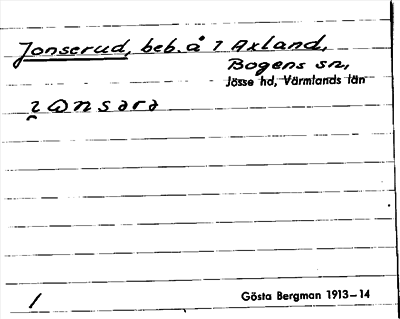 Jonserud, beb. å 1 Axland,
Bogens sn,
Jösse hd, Värmlands län
Gösta Bergman 1913–14